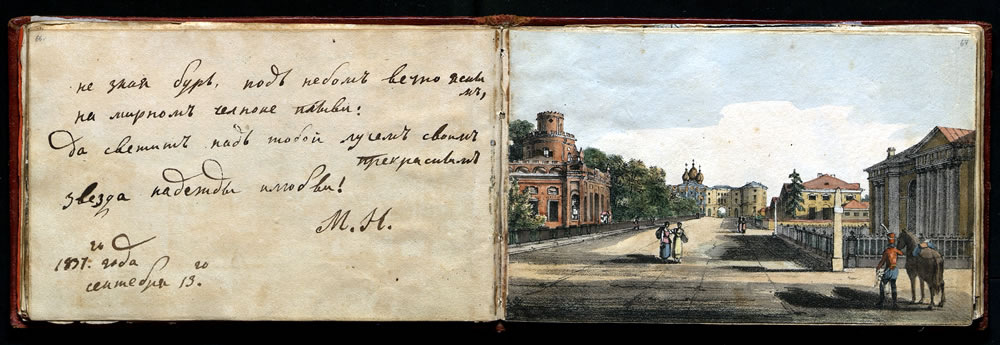 66.
не зная бурь, подъ небомъ вечно ясны
мъ,
на мирномъ челноке плыви:
Да светитъ надъ тобой лучемъ своимъ
прекраснымъ
звезда надежды илюбви!
М. Н.
го
1837. года
сентебря 13.го